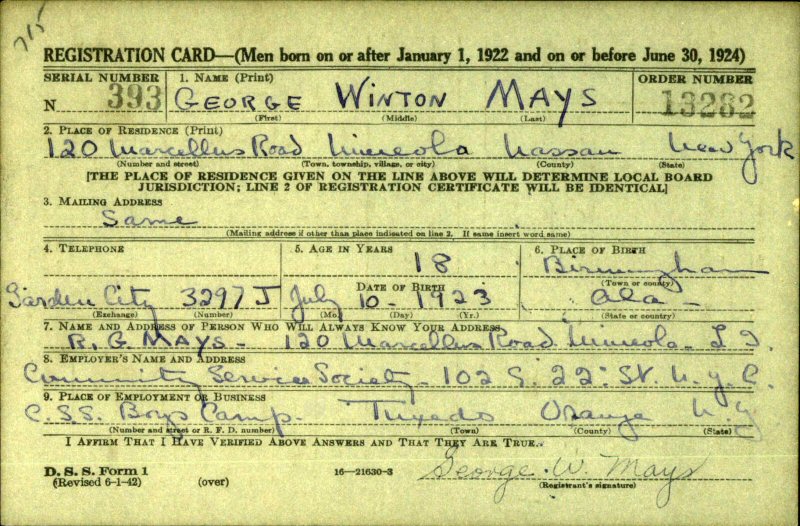 715
REGISTRATION CARD—(Men born on or after January 1, 1922 and on or before June 30, 1924)
SERIAL NUMBER 1. NAME (Print) ORDER NUMBER
N 393 GEORGE WINTON MAYS 13282
(First) (Middle) (Last)
2. PLACE OF RESIDENCE (Print)
120 Marcellus Road Mineola Nassau New York
(Number and street) (Town, township, village, or city) (County) (State)
[THE PLACE OF RESIDENCE GIVEN ON THE LINE ABOVE WILL DETERMINE LOCAL BOARD
JURISDICTION; LINE 2 OF REGISTRATION CERTIFICATE WILL BE IDENTICAL]
3. MAILING ADDRESS
Same
(Mailing address if other than place indicated on line 2. If same insert word same)
4. TELEPHONE 5. AGE IN YEARS 6. PLACE OF BIRTH
18 Birmingham
DATE OF BIRTH (Town or county)
Garden City 3297 J July 10 - 1923 Ala -
(Exchange) (Number) (Mo.) (Day) (Yr.) (State or country)
7. NAME AND ADDRESS OF PERSON WHO WILL ALWAYS KNOW YOUR ADDRESS
R. G. MAYS - 120 Marcellus Road Mineola - L. I.
8. EMPLOYER'S NAME AND ADDRESS
Community Service Society - 102 E. 22" St. N.Y.C.
9. PLACE OF EMPLOYMENT OR BUSINESS
C.S.S. Boys Camp - Tuxedo Orange N.Y
(Number and street or R. F. D. number) (Town) (County) (State)
I AFFIRM THAT I HAVE VERIFIED ABOVE ANSWERS AND THAT THEY ARE TRUE.
D. S. S. Form 1 16—21630-3 George W. Mays
(Revised 6-1-42) (over) (Registrant's signature)